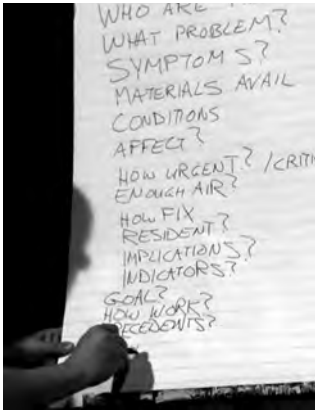 WHO ARE
WHAT PROBLEM?
SYMPTOMS?
MATERIALS AVAIL
CONDITIONS
AFFECT?
HOW URGENT? /CRITI
ENOUGH AIR?
HOW FIX
RESIDENT?
IMPLICATIONS?
INDICATORS?
GOAL?
HOW WORK?
PRECEDENTS?